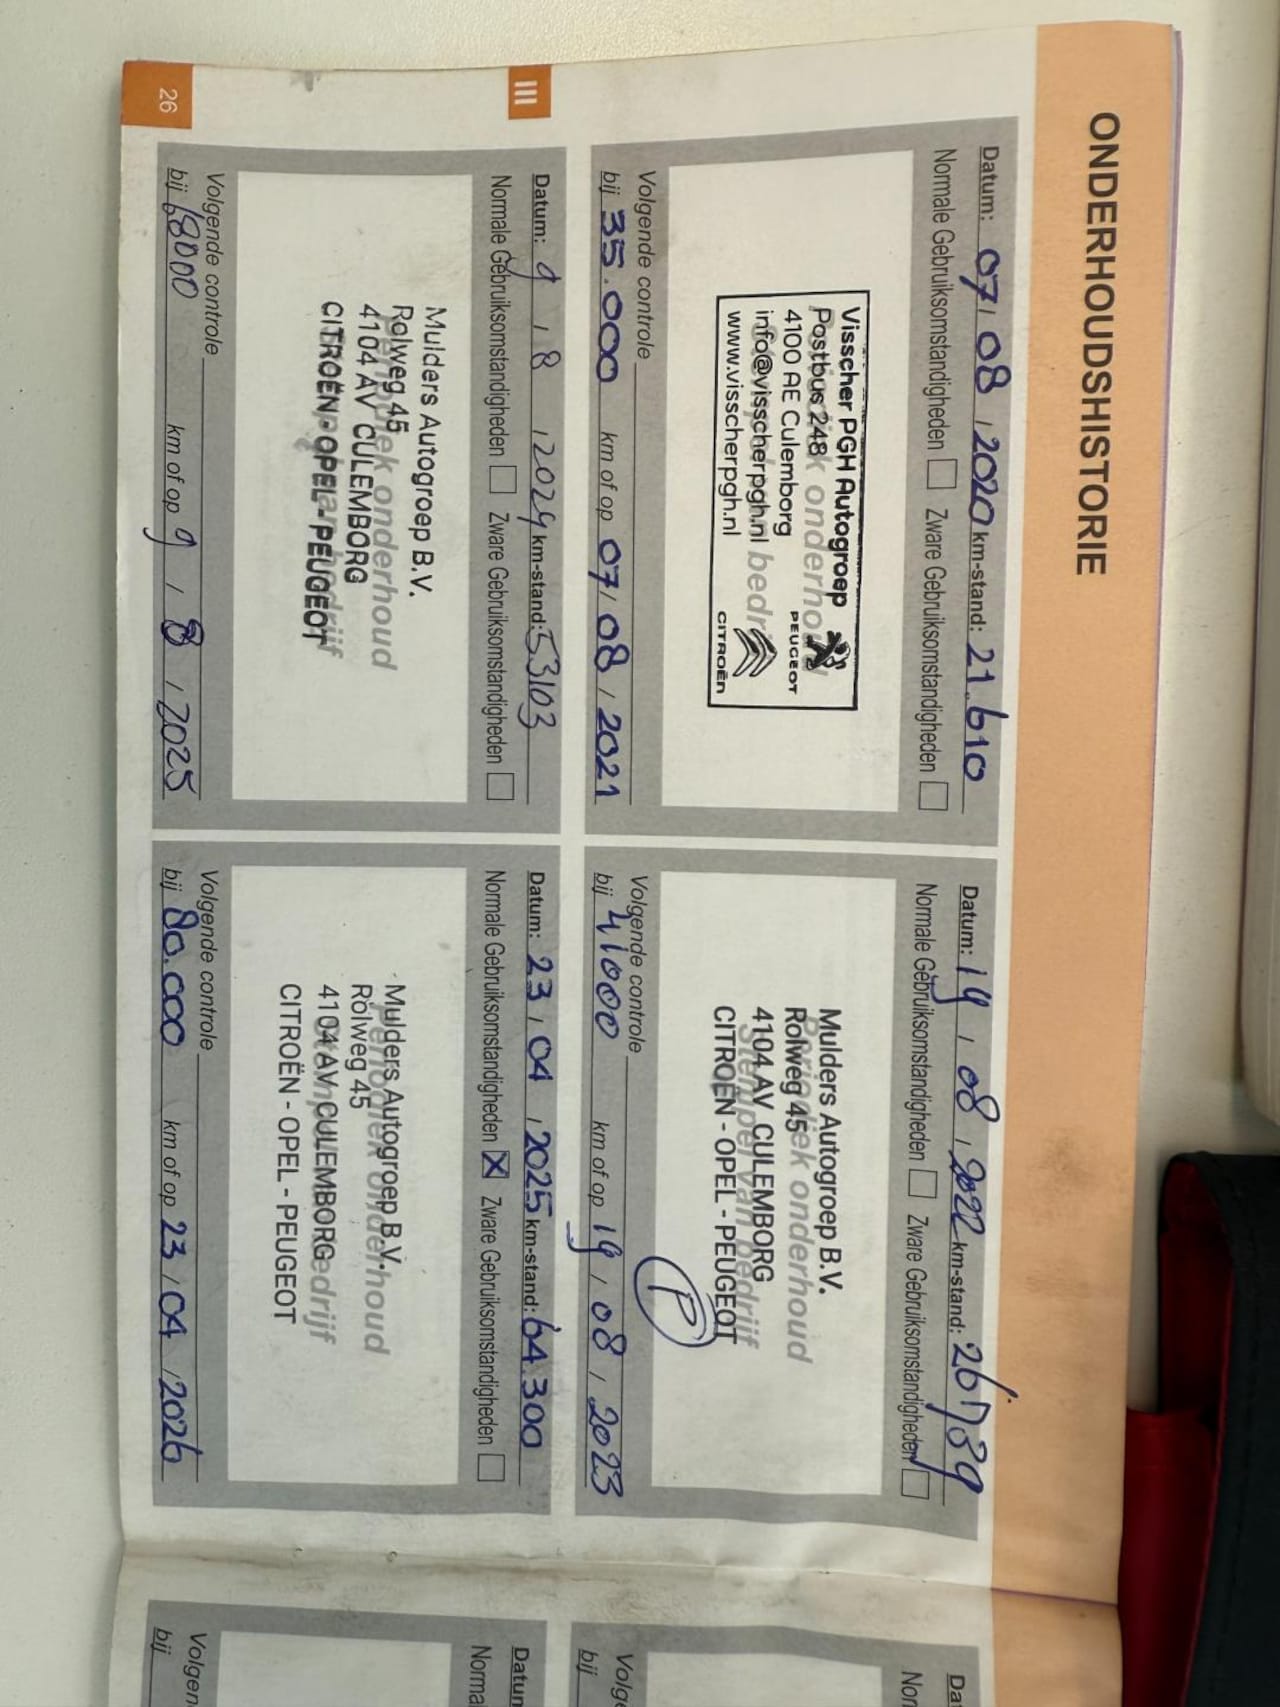 ONDERHOUDSHISTORIE
Datum: 07/08/2020 km-stand: 21.610
Normale Gebruiksomstandigheden Zware Gebruiksomstandigheden
Periodiek onderhoud
Visscher PGH Autogroep
Postbus 248
4100 AE Culemborg
info@visscherpgh.nl
www.visscherpgh.nl
PEUGEOT
CITROËN
Volgende controle
bij 35.000 km of op 07/08/2021
Datum: 19/08/2022 km-stand: 26739
Normale Gebruiksomstandigheden Zware Gebruiksomstandigheden
Periodiek onderhoud
Stempel van bedrijf
Mulders Autogroep B.V.
Rolweg 45
4104 AV CULEMBORG
CITROËN - OPEL - PEUGEOT
P
Volgende controle
bij 41000 km of op 19/08/2023
III
Datum: 9/8/2024 km-stand: 53103
Normale Gebruiksomstandigheden Zware Gebruiksomstandigheden
Periodiek onderhoud
Stempel van bedrijf
Mulders Autogroep B.V.
Rolweg 45
4104 AV CULEMBORG
CITROËN - OPEL - PEUGEOT
Volgende controle
bij 68000 km of op 9/8/2025
Datum: 23/04/2025 km-stand: 64.300
Normale Gebruiksomstandigheden X Zware Gebruiksomstandigheden
Periodiek onderhoud
Stempel van bedrijf
Mulders Autogroep B.V.
Rolweg 45
4104 AV CULEMBORG
CITROËN - OPEL - PEUGEOT
Volgende controle
bij 80.000 km of op 23/04/2026
26
Dat
Nor
Volge
bij
Datun
Norma
Volgen
bij